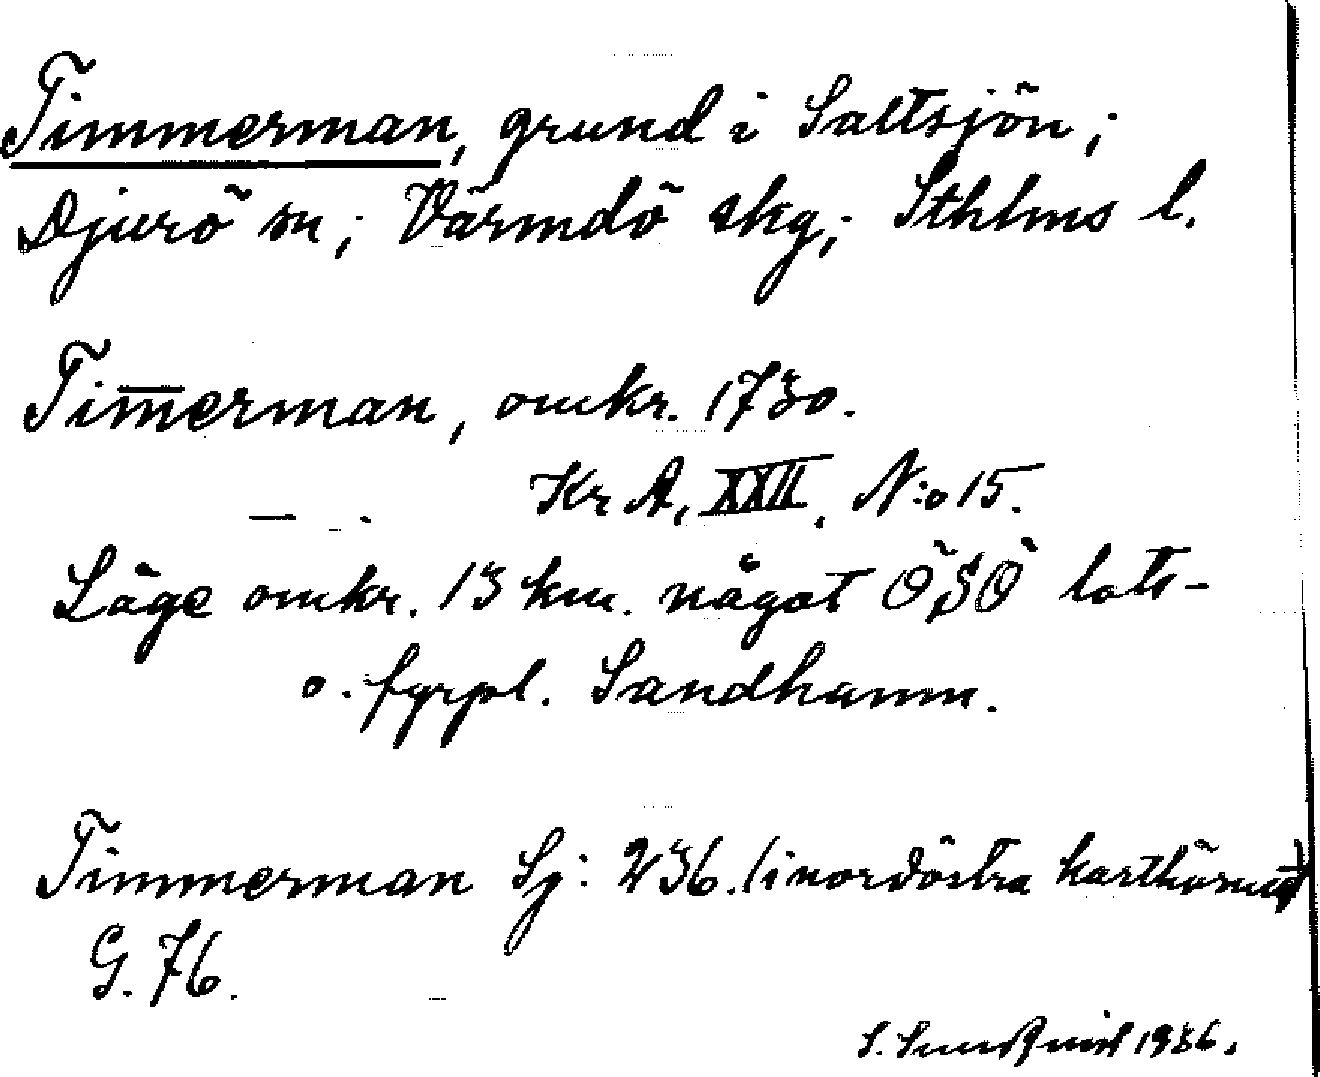 Timmerman, grund i Saltsjön;
Djurö sn; Värmdö skg; Sthlms l.
Tim̅erman, omkr. 1730.
Kr A, XXII, N:o 15.
Läge omkr. 13 km. något ÖSÖ lots-
o. fyrpl. Sandhamn.
Timmerman Sj: 236. (i nordöstra karthörnet)
G. 76.
S. Sundquist 1936.